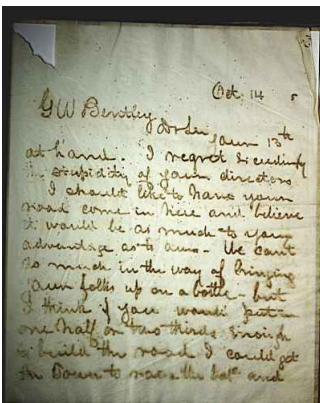 Oct. 14 5
G W Bentley
Dr Sir Yours 13th
at hand. I regret exceedingly
the stupidity of your directors
I should like to have your
road come in here and believe
it would be as much to your
advantage as to ours - We can't
do much in the way of bringing
your folks up on a bottle - but
I think if you would put in
one half or two thirds enough
to build the road I could get
the Town to raise the balce and